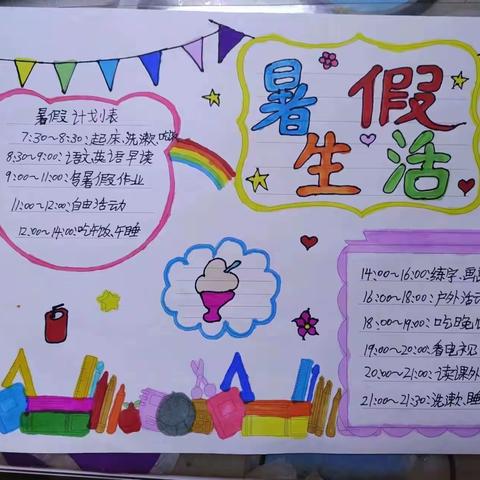 暑假
生活
暑假计划表
7:30~8:30:起床、洗漱、吃饭
8:30~9:00:语文英语早读
9:00~11:00:写暑假作业
11:00~12:00:自由活动
12:00~14:00:吃午饭、午睡
14:00~16:00:练字、画
16:00~18:00:户外活动
18:00~19:00:吃晚
19:00~20:00:看电视
20:00~21:00:读课外
21:00~21:30:洗漱、睡